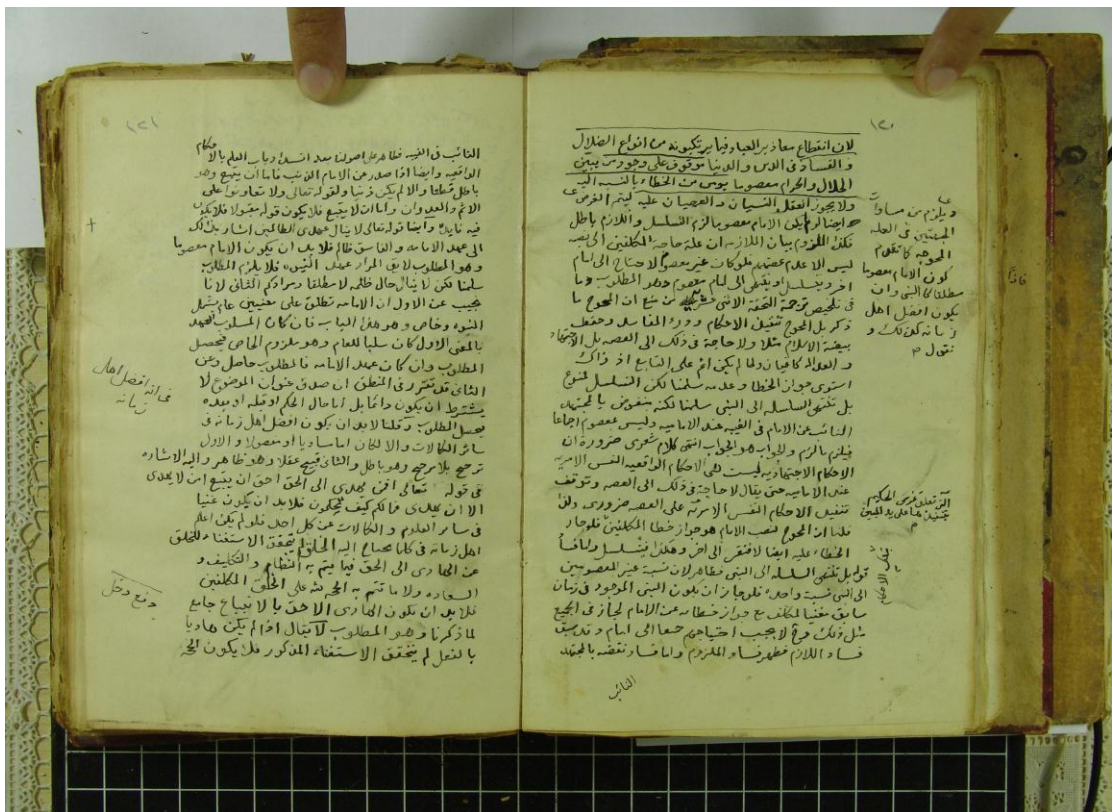 ١٢٠
لان انقطاع معاذير العباد فيما يرتكبونه من انواع الضلال
و الفساد فى الدين والدنيا موقوف على وجود من يبين
الحلال والحرام معصوما من الخطاء بالنسبه اليه
ولا يجوز العقل النسيان والعصيان عليه ليتم الغرض
ايضا لو لم يكن الامام معصوما لزم التسلسل واللازم باطل
فكذا الملزوم بيان الملازمه ان علة حاجة المكلفين الى نصبه
ليس الا عدم عصمتهم فلو كان غير معصوم لاحتاج الى امام
اخر ويتسلسل او ينتهى الى امام معصوم وهو المطلوب وما
فى تلخيص ترجمة التحفة الاثنى من منع ان المحوج ما
ذكر بل المحوج تنفيذ الاحكام ودرء المفاسد وحفظ
بيضة الاسلام مثلا ولا حاجة فى ذلك الى العصمه بل الاجتهاد
و العداله كافيان ولما لم يكن اثم على التابع اذ ذاك
استوى جواز الخطا وعدمه سلمنا لكن التسلسل ممنوع
بل تنتهى السلسله الى النبى سلمنا لكنه منقوض بالمجتهد
النائب عن الامام فى الغيبه عند الاماميه وليس بمعصوم اجماعا
فيلزم ما لزم والجواب هو الجواب انتهى كلام شعرى ضرورة ان
الاحكام الاجتهاديه ليست هى الاحكام الواقعيه النفس الامريه
عند الاماميه حتى يقال لا حاجة فى ذلك الى العصمه وتوقف
تنفيذ الاحكام النفس الامريه على العصمه ضرورى ولذا
قلنا ان المحوج لنصب الامام هو جواز خطا المكلفين فلو جاز
الخطاء عليه ايضا لافتقر الى اخر وهكذا فيتسلسل واما
قوله بل تنتهى السلسله الى النبى فظاهر لان نسبة غير المعصومين
الى النبى نسبة واحده فلو جاز ان يكون النبى الموجود فى زمان
سابق مغنيا لمكلف مع جواز خطائه عن الامام لجاز فى الجميع
مثل ذلك و لا يجب احتياجهم جمعا الى امام وقد سبق
فساد اللازم فظهر فساد الملزوم واما فساد نقضه بالمجتهد
النائب
ويلزم من مساواة
المجتمعين فى العله
المحوجه كما تقدم
كون الامام معصوما
مطلقا كالنبى وان
يكون افضل اهل
زمانه كذلك و
نقول
١٢١
النائب فى الغيبه فظاهر على اصولنا بعد انسداد باب العلم بالاحكام
الواقعيه وايضا اذا صدر عن الامام الذنب فاما ان يتبع وهو
باطل قطعا والا لم يكن ذنبا ولقوله تعالى ولا تعاونوا على
الاثم والعدوان واما ان لا يتبع فلا يكون قوله مقبولا فلا يكون
فيه فايده وايضا قوله تعالى لا ينال عهدى الظالمين اشار بذلك
الى عهد الامامه والفاسق ظالم فلا بد ان يكون الامام معصوما
وهو المطلوب لا يق المراد عهد النبوه فلا يلزم المطلوب
سلمنا لكن لا ينال حال ظلمه لا مطلقا ومرادكم الثانى لانا
نجيب عن الاول ان الامامه تطلق على معنيين عام يشمل
النبوه وخاص وهو هذا الباب فان كان المسلوب العهد
بالمعنى الاول كان سلبا للعام وهو ملزوم الخاص فيحصل
المطلوب وان كان عهد الامامه فالمطلوب حاصل وعن
الثانى قد تقرر فى المنطق ان صدق عنوان الموضوع لا
يشترط ان يكون دائما بل اما حال الحكم او قبله او بعده
يحصل المطلوب وقلنا لابد ان يكون افضل اهل زمانه فى
سائر الكمالات والا لكان اما مساويا او مفضولا والاول
ترجيح بلا مرجح وهو باطل والثانى قبيح عقلا وهو ظاهر واليه الاشاره
فى قوله تعالى افمن يهدى الى الحق احق ان يتبع امن لا يهدى
الا ان يهدى فما لكم كيف تحكمون فلا بد ان يكون غنيا
فى سائر العلوم والكمالات عن كل احد فلو لم يكن اعلم
اهل زمانه فى كلما يحتاج اليه الخلق لم يتحقق الاستغناء للخلق
عن الهادى الى الحق فيما يتم به النظام والتكليف و
السعاده ولا ما تتم به الحجه لله على الخلق المكلفين
فلا بد ان يكون الهادى الاحق بالاتباع جامع
لما ذكرنا وهو المطلوب لا يقال اذا لم يكن هاديا
بالفعل لم يتحقق الاستغناء المذكور فلا يكون
فى انه افضل اهل
زمانه
دفع دخل